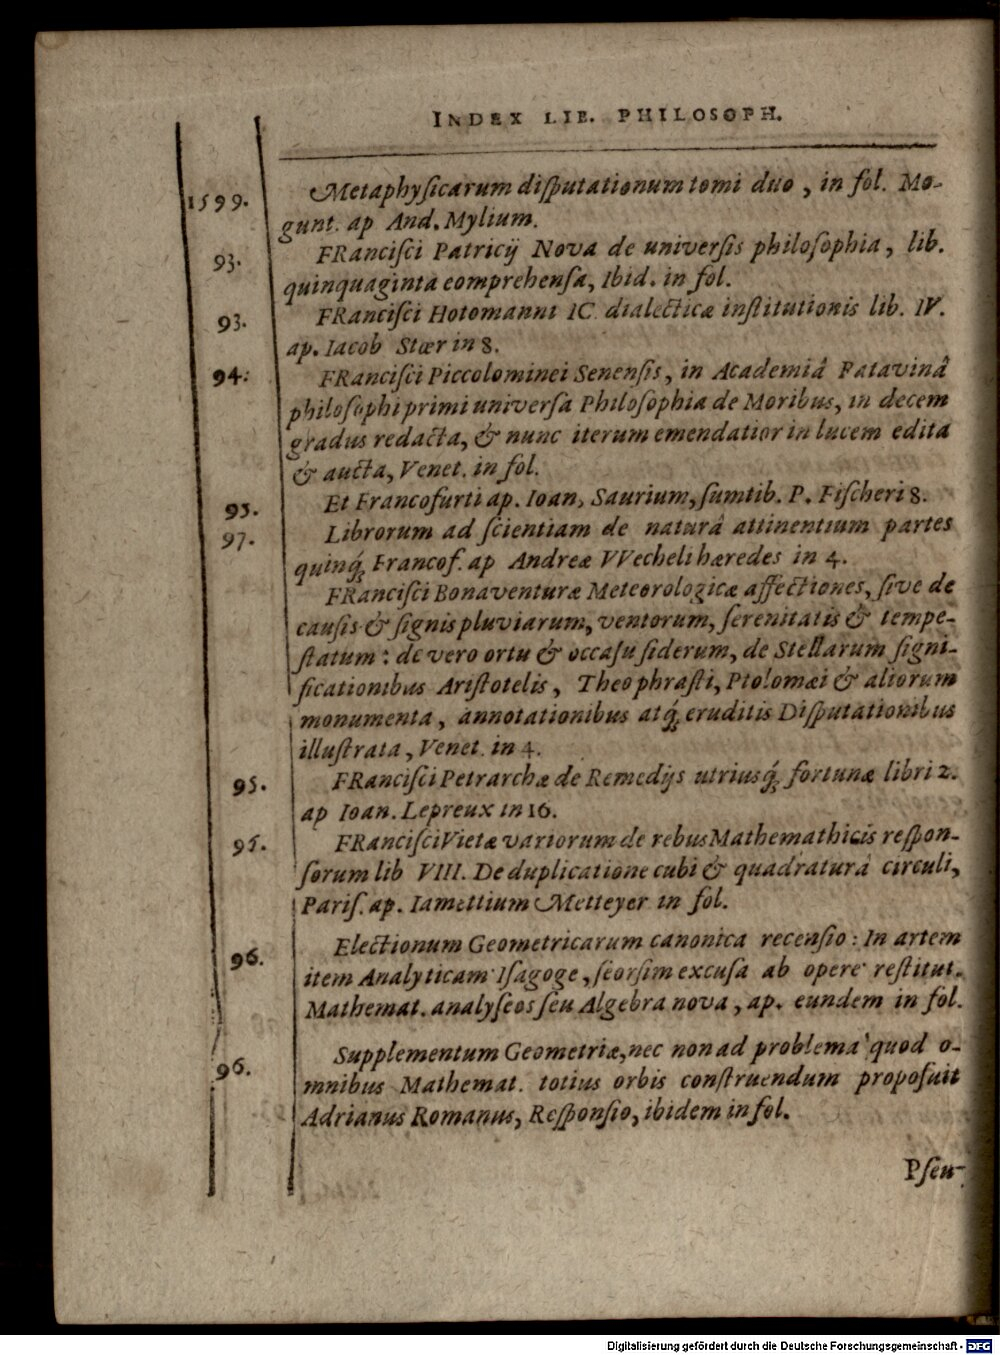 INDEX LIB. PHILOSOPH.
1599. Metaphyſicarum diſputationum tomi duo, in fol. Mo-
gunt. ap And. Mylium.
93. FRanciſci Patricij Nova de univerſis philoſophia, lib.
quinquaginta comprehenſa, Ibid. in fol.
93. FRanciſci Hotomanni IC. dialecticæ inſtitutionis lib. IV.
ap. Iacob Stœr in 8.
94. FRanciſci Piccolominei Senenſis, in Academiâ Patavinâ
philoſophi primi univerſa Philoſophia de Moribus, in decem
gradus redacta, & nunc iterum emendatior in lucem edita
& aucta, Venet. in fol.
95. Et Francofurti ap. Ioan, Saurium, ſumtib. P. Fiſcheri 8.
97. Librorum ad ſcientiam de naturâ attinentium partes
quinq́; Francof. ap Andreæ VVecheli hæredes in 4.
FRanciſci Bonaventuræ Meteorologicæ affectiones, ſive de
cauſis & ſignis pluviarum, ventorum, ſerenitatis & tempe-
ſtatum : de vero ortu & occaſu ſiderum, de Stellarum ſigni-
ficationibus Ariſtotelis, Theophraſti, Ptolomæi & aliorum
monumenta, annotationibus atq́; eruditis Diſputationibus
illuſtrata, Venet. in 4.
95. FRanciſci Petrarchæ de Remedijs utriusq́; fortunæ libri 2.
ap Ioan. Lepreux in 16.
95. FRanciſci Vietæ variorum de rebus Mathemathicis reſpon-
ſorum lib VIII. De duplicatione cubi & quadraturâ circuli,
Pariſ. ap. Iamettium Metteyer in fol.
96. Electionum Geometricarum canonica recenſio : In artem
item Analyticam Iſagoge, ſeorſim excuſa ab opere reſtitut.
Mathemat. analyſeos ſeu Algebra nova, ap. eundem in fol.
96. Supplementum Geometriæ, nec non ad problema quod o-
mnibus Mathemat. totius orbis conſtruendum propoſuit
Adrianus Romanus, Reſponſio, ibidem in fol.
Pſeu-
Digitalisierung gefördert durch die Deutsche Forschungsgemeinschaft - DFG